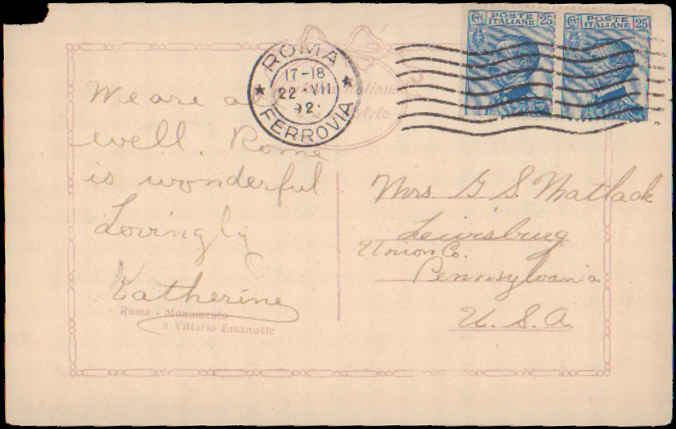 POSTE
ITALIANE
25
POSTE
ITALIANE
25
ROMA
17-18
22 VII
FERROVIA
We are all
well. Rome
is wonderful
Lovingly
Katherine
Roma - Monumento
a Vittorio Emanuele
Mrs G S Matlack
Lewisburg
Union Co.
Pennsylvania
U.S.A.